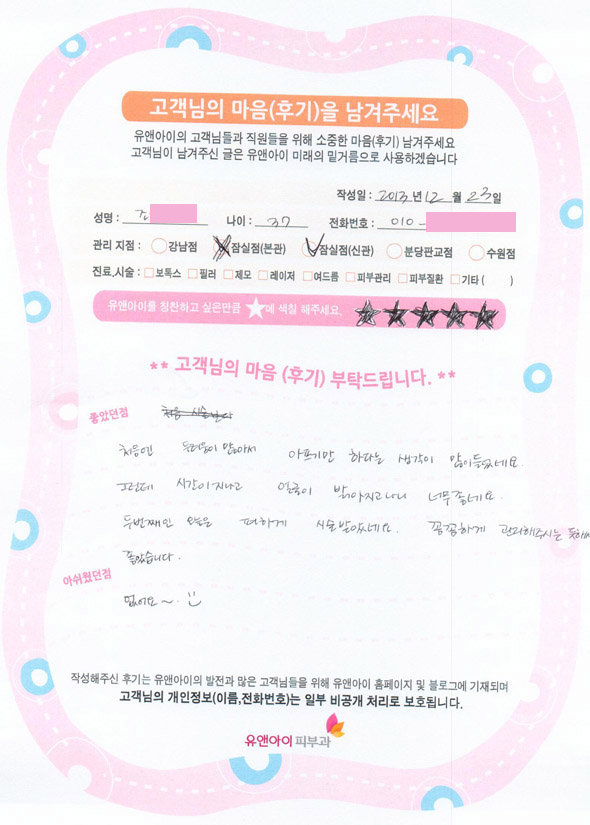 고객님의 마음(후기)을 남겨주세요
유앤아이의 고객님들과 직원들을 위해 소중한 마음(후기) 남겨주세요
고객님이 남겨주신 글은 유앤아이 미래의 밑거름으로 사용하겠습니다
작성일 : 2013년 12월 23일
성명 : 조 나이 : 37 전화번호 : 010 -
관리 지점 : 강남점 잠실점(본관) 잠실점(신관) 분당판교점 수원점
진료,시술 : 보톡스 필러 제모 레이저 여드름 피부관리 피부질환 기타 ( )
유앤아이를 칭찬하고 싶은만큼 ★에 색칠 해주세요. ★★★★★
** 고객님의 마음 (후기) 부탁드립니다. **
좋았던점 처음 시술받다
처음엔 두려움이 많아서 아프기만 하다는 생각이 많이들었네요.
그런데 시간이지나고 얼굴이 밝아지고나니 너무좋네요.
두번째인 오늘은 편하게 시술받았네요. 꼼꼼하게 관리해주시는 듯해서
좋았습니다.
아쉬웠던점
없어요~.
작성해주신 후기는 유앤아이의 발전과 많은 고객님들을 위해 유앤아이 홈페이지 및 블로그에 기재되며
고객님의 개인정보(이름,전화번호)는 일부 비공개 처리로 보호됩니다.
유앤아이 피부과